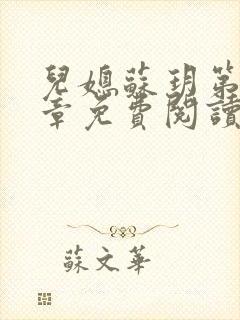 兒媳蘇玥第
章免費閱讀
蘇文華